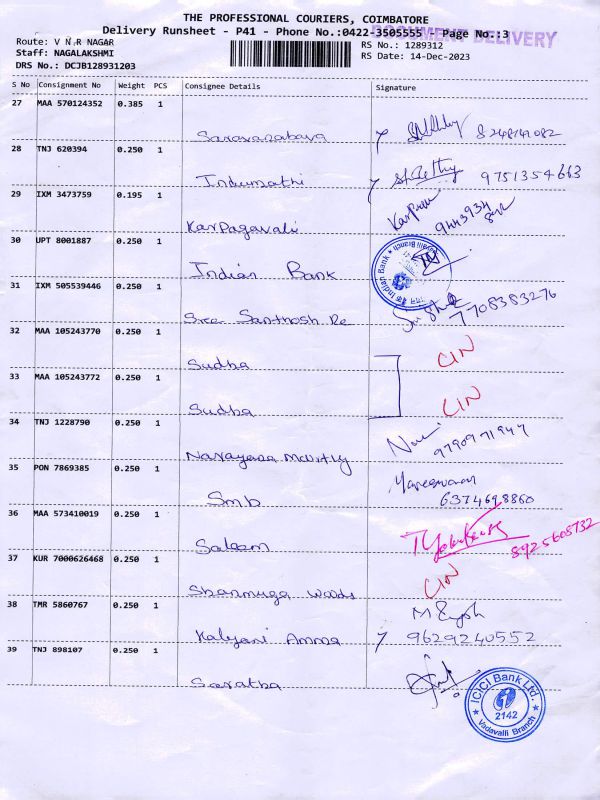 THE PROFESSIONAL COURIERS, COIMBATORE
Delivery Runsheet - P41 - Phone No.:0422-3505555 Page No.:3
DOCUMENT DELIVERY
Route: V N R NAGAR
RS No.: 1289312
Staff: NAGALAKSHMI
RS Date: 14-Dec-2023
DRS No.: DCJB128931203
S No Consignment No Weight PCS Consignee Details Signature
27 MAA 570124352 0.385 1
Saravanabava 8248149082
28 TNJ 620394 0.250 1
Indumathi 9751354663
29 IXM 3473759 0.195 1
Karpagavali 9443934
30 UPT 8001887 0.250 1
Indian Bank
Indian Bank
31 IXM 505539446 0.250 1
Sree Santhosh Re 7708383276
32 MAA 105243770 0.250 1
Sudha CIN
33 MAA 105243772 0.250 1
Sudha CIN
34 TNJ 1228790 0.250 1
Narayana Murthy 9790971947
35 PON 7869385 0.250 1
Smb 6374698860
36 MAA 573410019 0.250 1
Saleem 8925608732
37 KUR 7000626468 0.250 1
Shanmuga woods CIN
38 TMR 5860767 0.250 1
Kalyani Amma 9629240552
39 TNJ 898107 0.250 1
Saratha
ICICI Bank Ltd.
2142
Vadavalli Branch